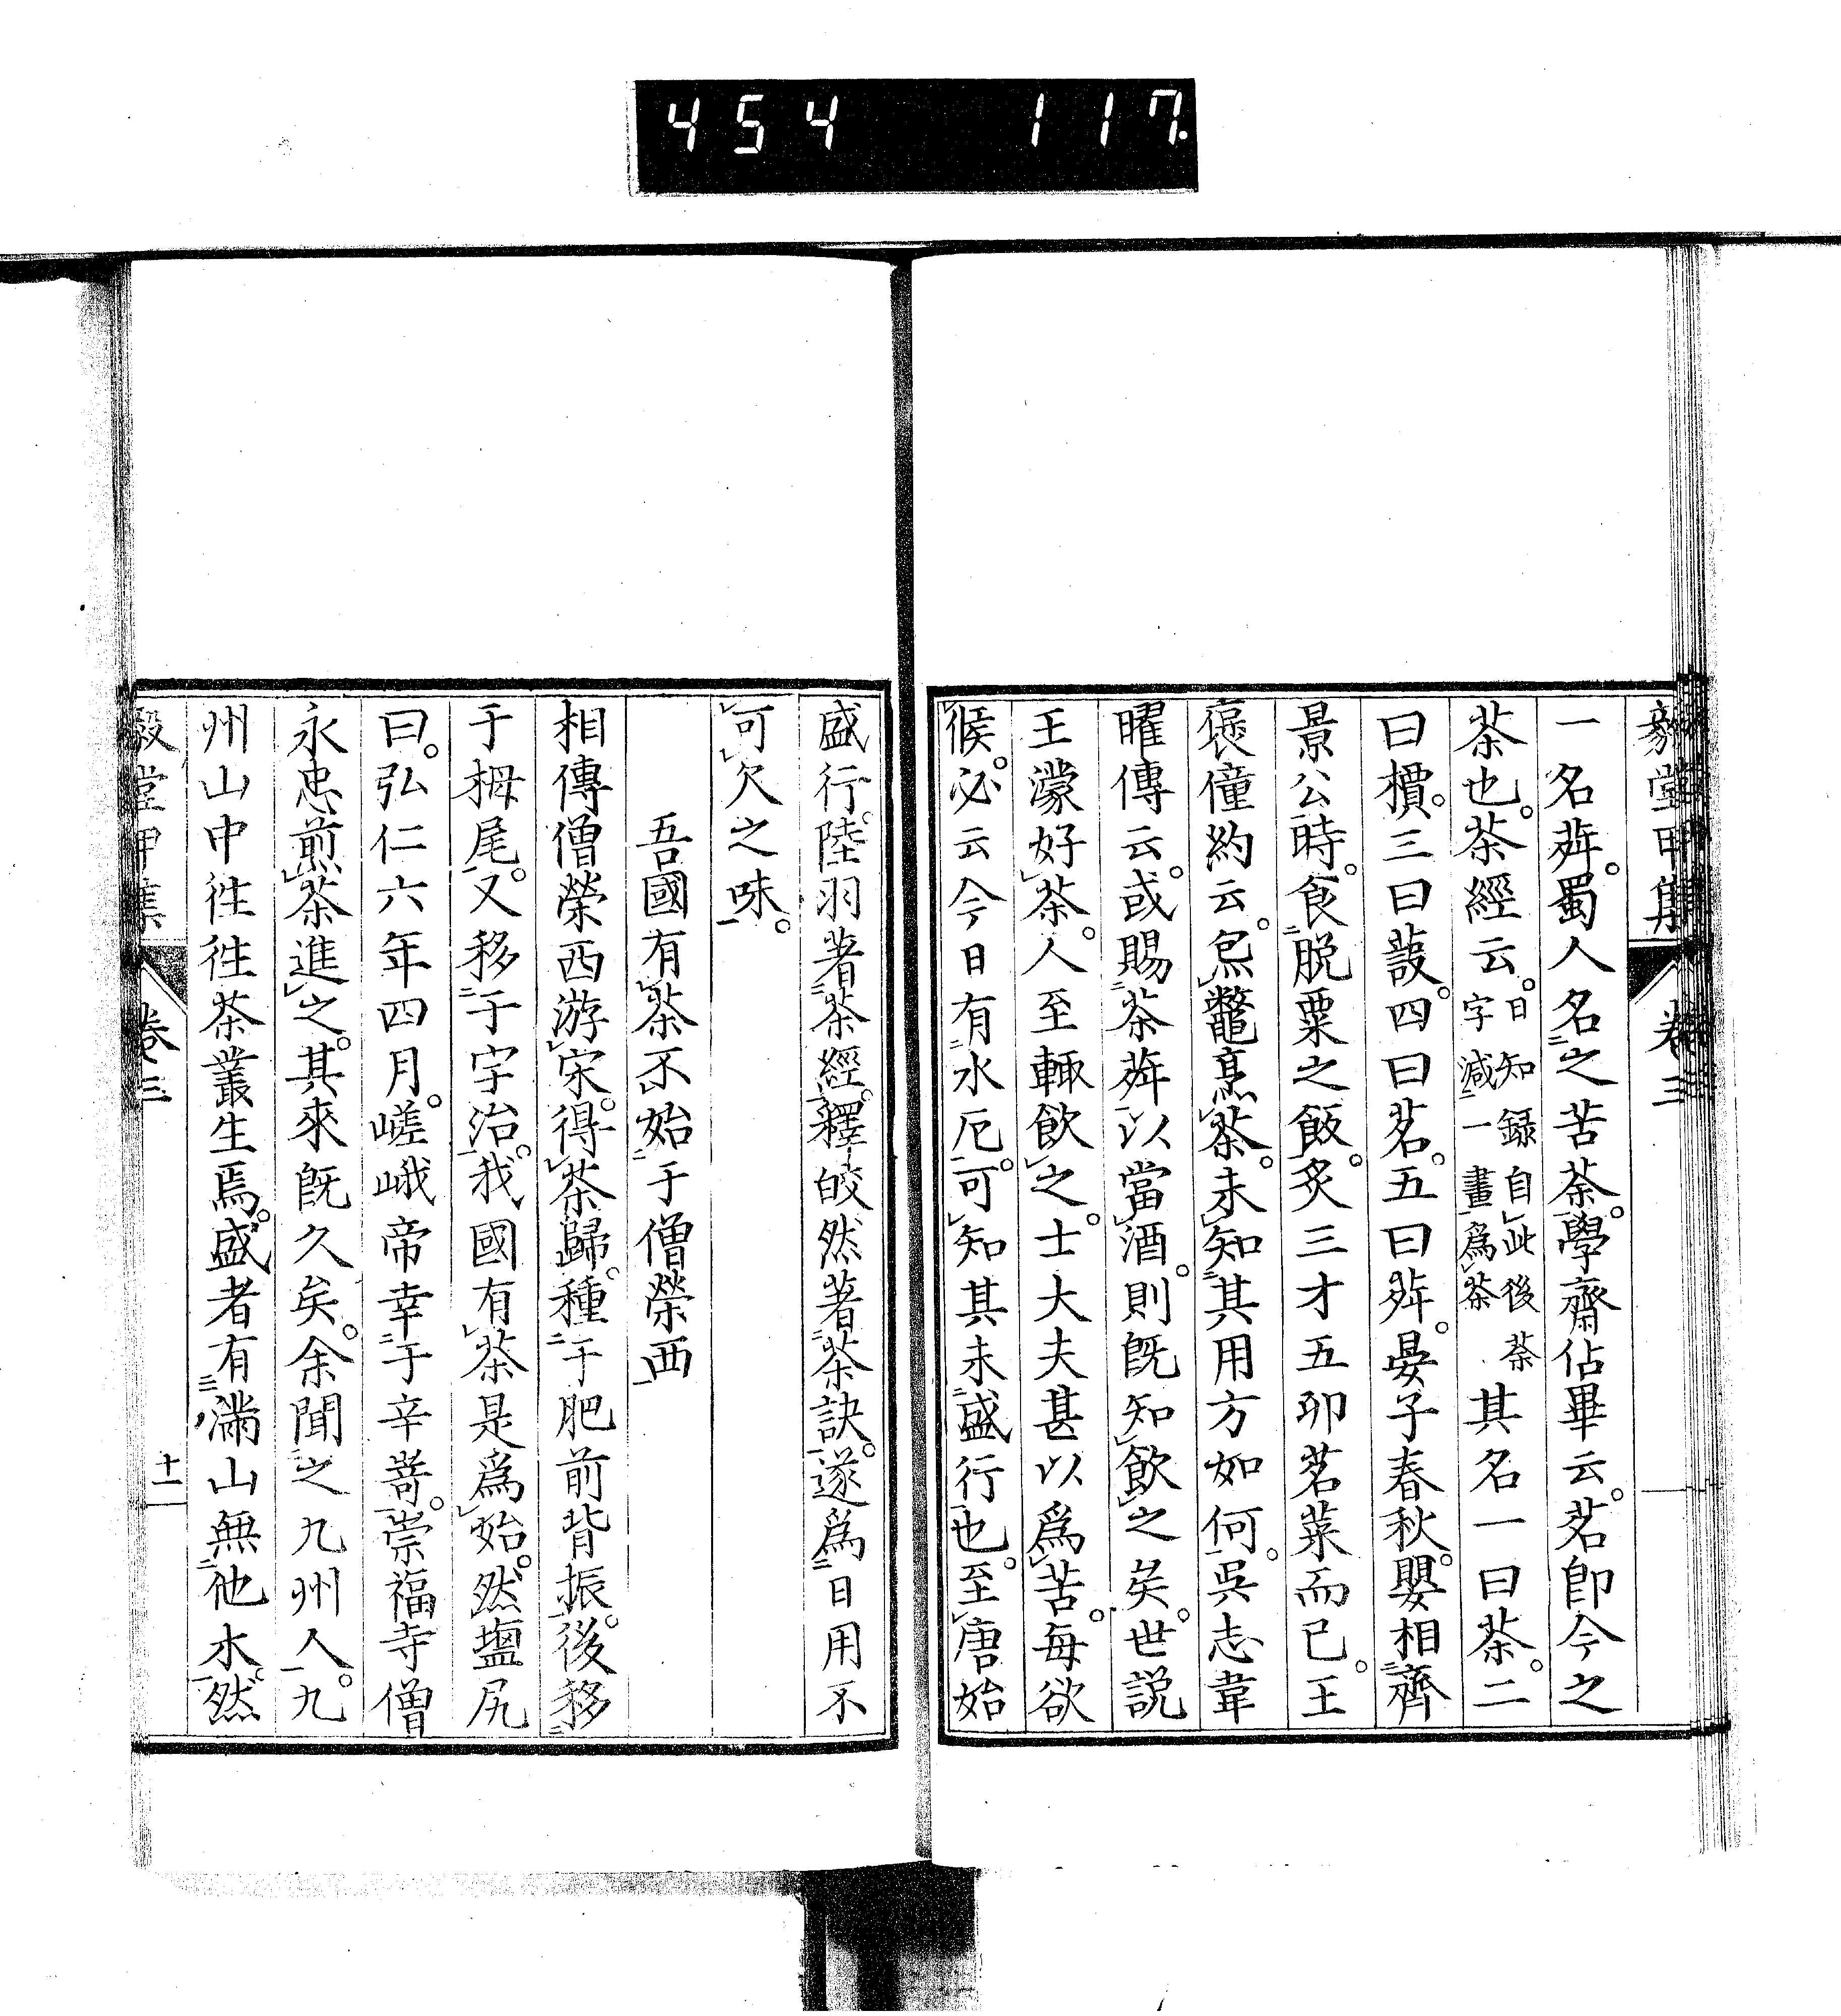 454 117.
毅堂甲集 卷三
一名荈。蜀人名之苦荼。學齋佔畢云。茗卽今之
茶也。茶經云。日知錄自此後荼字減一畫爲茶其名一曰茶。二
曰檟。三曰蔎。四曰茗。五曰荈。晏子春秋。嬰相齊
景公時。食脫粟之飯。炙三才五卯茗菜而已。王
褒僮約云。炰鼈烹茶。未知其用方如何。吳志韋
曜傳云。或賜茶荈以當酒。則旣知飮之矣。世說
王濛好茶。人至輒飮之。士大夫甚以爲苦。每欲
候。必云今日有水厄。可知其未盛行也。至唐始
盛行。陸羽著茶經。釋皎然著茶訣。遂爲日用不
可欠之味。
吾國有茶不始于僧榮西
相傳僧榮西游宋。得茶歸。種于肥前背振。後移
于栂尾。又移于宇治。我國有茶是爲始。然壒尻
曰。弘仁六年四月。嵯峨帝幸于辛嵜。崇福寺僧
永忠煎茶進之。其來旣久矣。余聞之九州人。九
州山中徃徃茶叢生焉。盛者有滿山無他木。然
毅堂甲集 卷三 十一